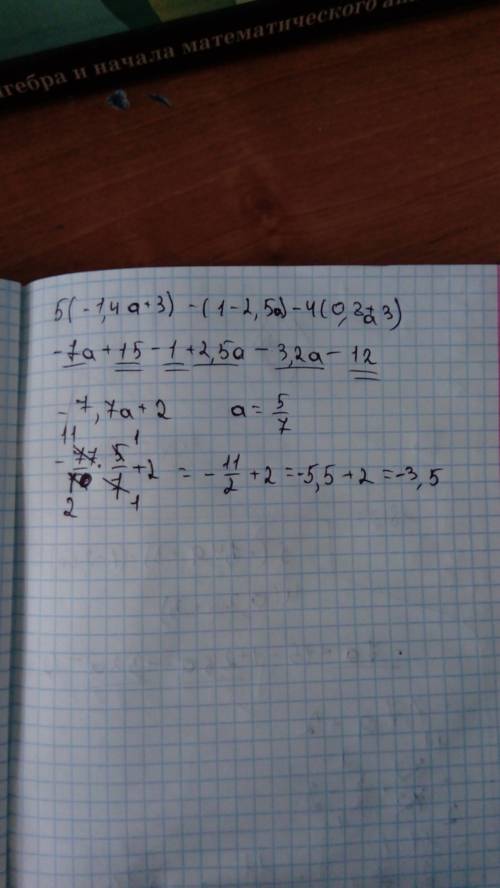 гебра и начала математического ан
5(-1,4a+3) -(1-2,5a)-4(0,8a+3)
-7a+15-1+2,5a-3,2a-12
-7,7a+2 a=5/7
-77/10·5/7+2 = -11/2+2=-5,5+2=-3,5